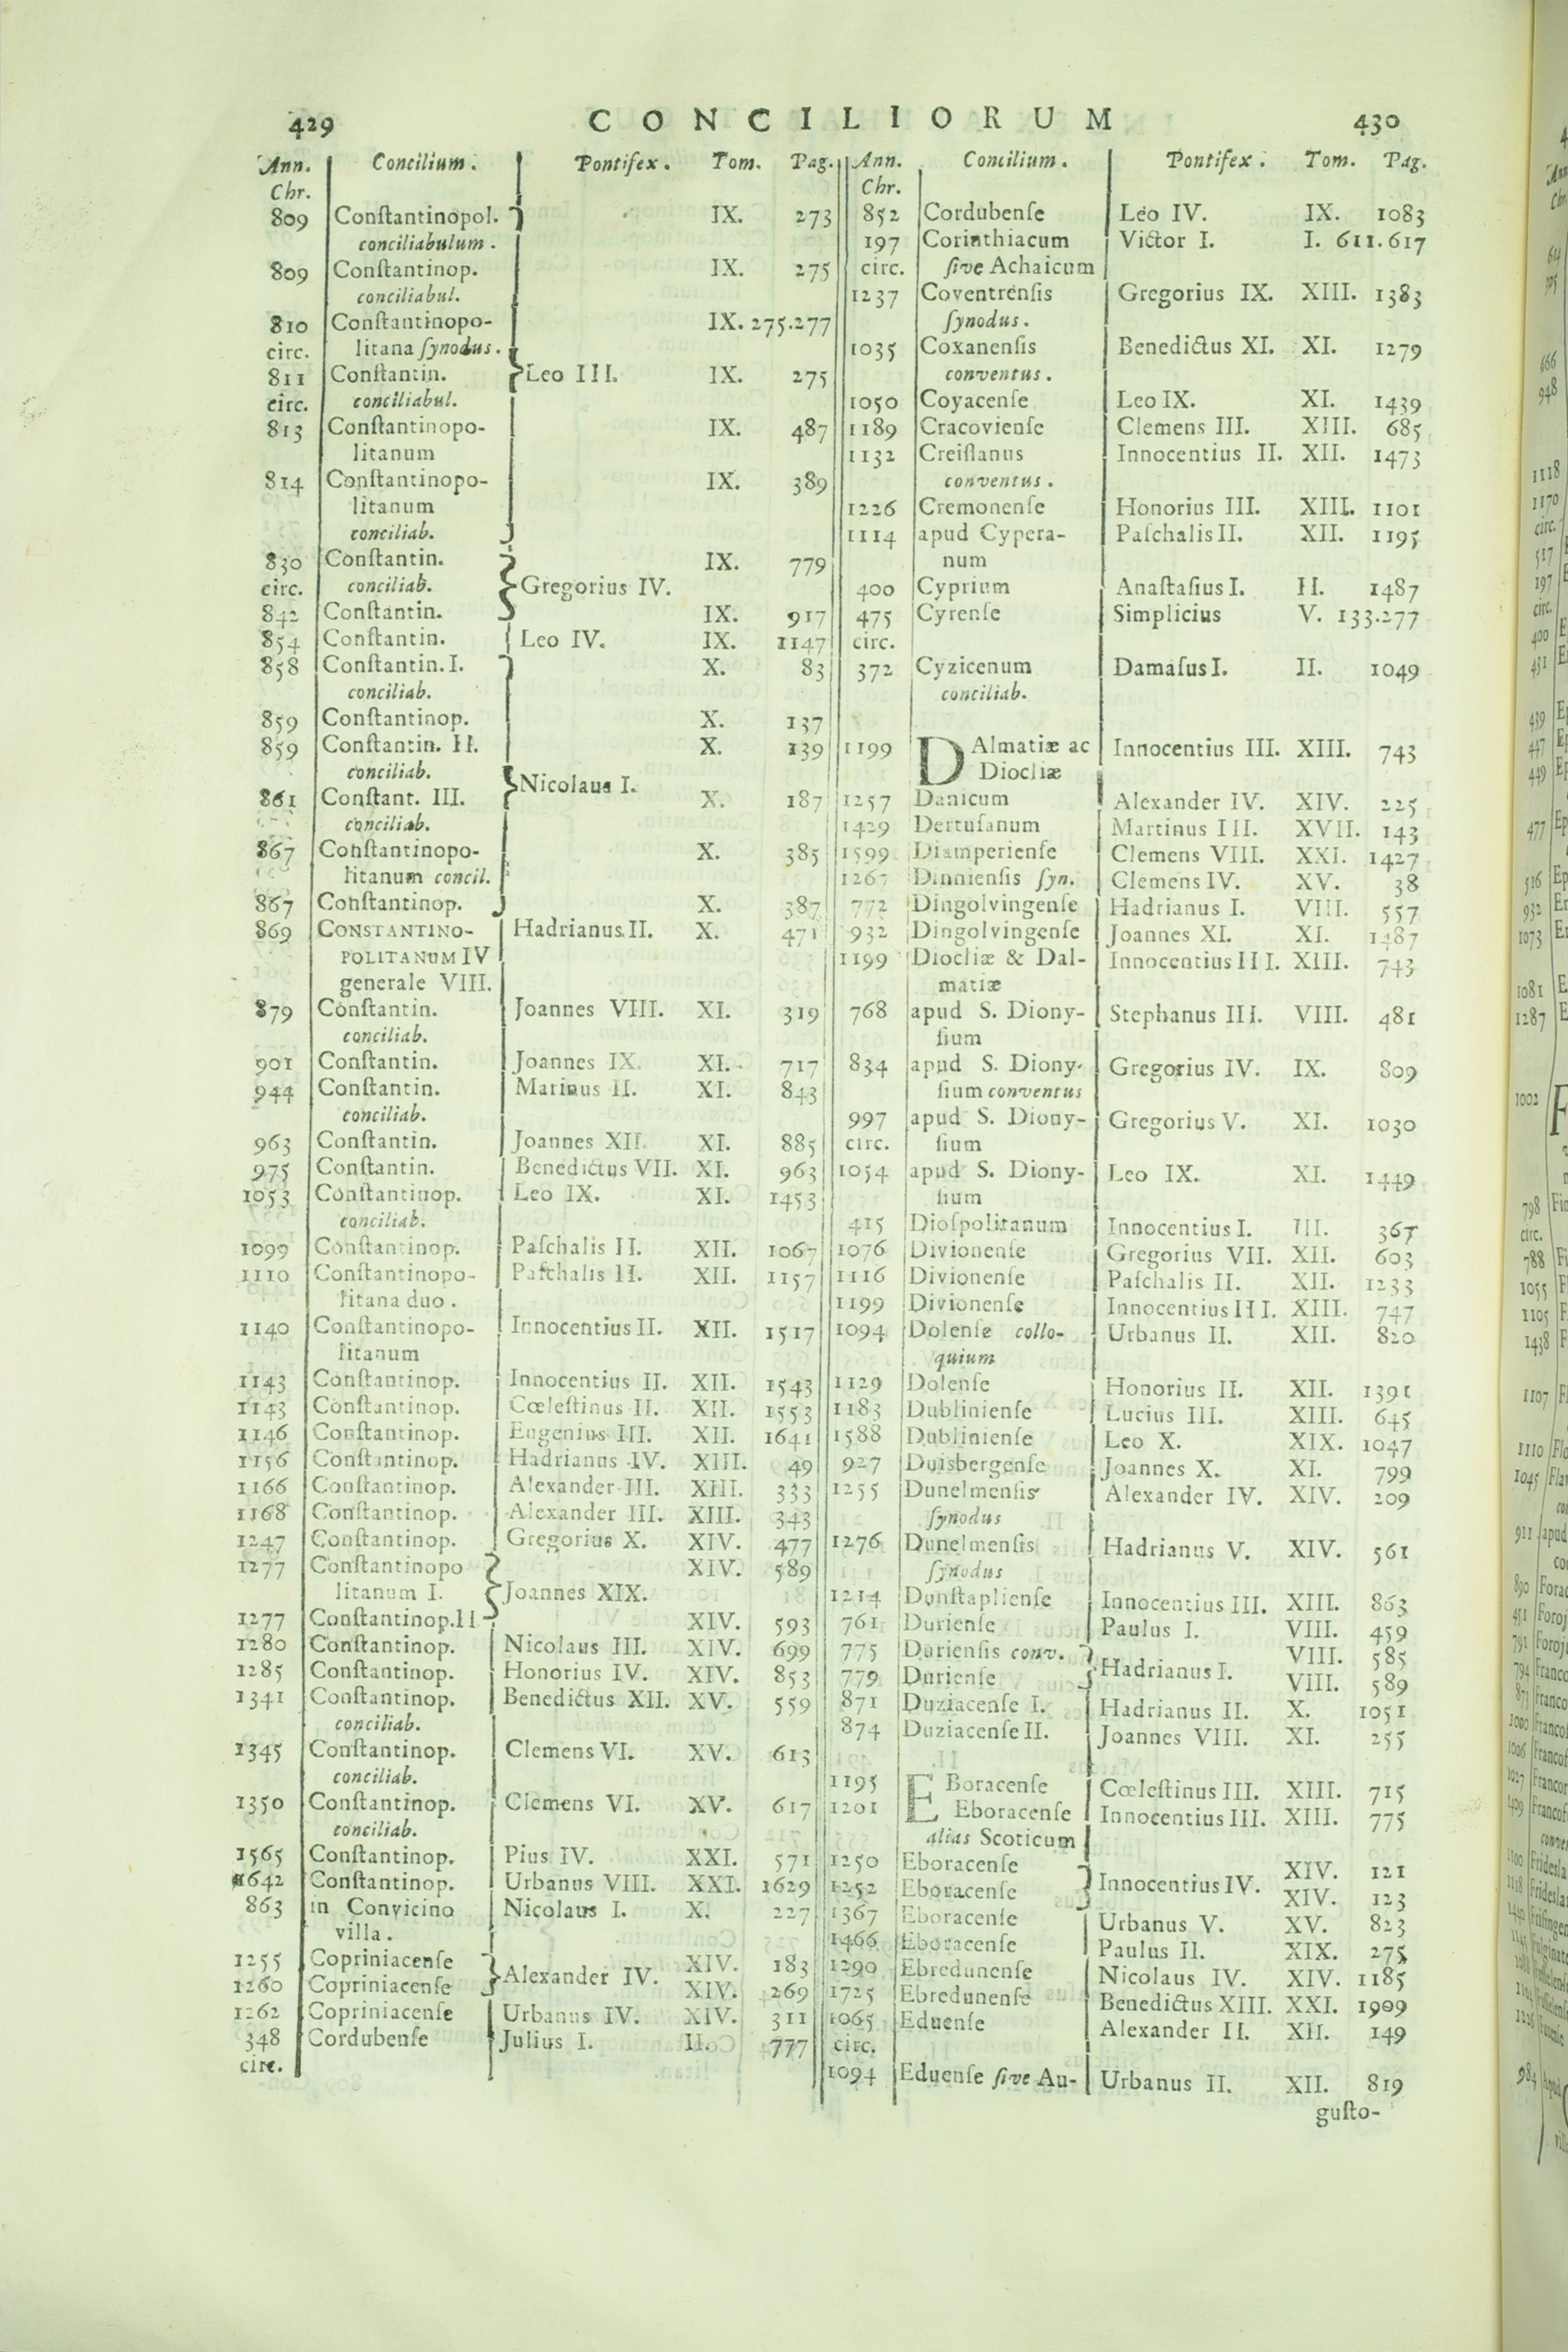 429 CONCILIORUM 430
Ann. Concilium. Pontifex. Tom. Pag.
Chr.
809 Conſtantinopol. IX. 273
conciliabulum.
809 Conſtantinop. IX. 275
conciliabul.
810 Conſtantinopo- IX. 275.277
circ. litana ſynodus.
811 Conſtantin. Leo III. IX. 275
circ. conciliabul.
813 Conſtantinopo- IX. 487
litanum
814 Conſtantinopo- IX. 389
litanum
conciliab.
830 Conſtantin. IX. 779
circ. conciliab. Gregorius IV.
842 Conſtantin. IX. 917
854 Conſtantin. Leo IV. IX. 1147
858 Conſtantin. I. X. 83
conciliab.
859 Conſtantinop. X. 137
859 Conſtantin. II. X. 139
conciliab. Nicolaus I.
861 Conſtant. III. X. 187
conciliab.
867 Conſtantinopo- X. 385
litanum concil.
867 Conſtantinop. X. 387
869 CONSTANTINO- Hadrianus II. X. 471
POLITANUM IV
generale VIII.
879 Conſtantin. Joannes VIII. XI. 319
conciliab.
901 Conſtantin. Joannes IX. XI. 717
944 Conſtantin. Marinus II. XI. 843
conciliab.
963 Conſtantin. Joannes XII. XI. 885
975 Conſtantin. Benedictus VII. XI. 963
1053 Conſtantinop. Leo IX. XI. 1453
conciliab.
1099 Conſtantinop. Paſchalis II. XII. 1067
1110 Conſtantinopo- Paſchalis II. XII. 1157
litana duo.
1140 Conſtantinopo- Innocentius II. XII. 1517
litanum
1143 Conſtantinop. Innocentius II. XII. 1543
1143 Conſtantinop. Cœleſtinus II. XII. 1553
1146 Conſtantinop. Eugenius III. XII. 1641
1156 Conſtantinop. Hadrianus IV. XIII. 49
1166 Conſtantinop. Alexander III. XIII. 333
1168 Conſtantinop. Alexander III. XIII. 343
1247 Conſtantinop. Gregorius X. XIV. 477
1277 Conſtantinopo XIV. 589
litanum I. Joannes XIX.
1277 Conſtantinop. II XIV. 593
1280 Conſtantinop. Nicolaus III. XIV. 699
1285 Conſtantinop. Honorius IV. XIV. 853
1341 Conſtantinop. Benedictus XII. XV. 559
conciliab.
1345 Conſtantinop. Clemens VI. XV. 613
conciliab.
1350 Conſtantinop. Clemens VI. XV. 617
conciliab.
1565 Conſtantinop. Pius IV. XXI. 571
1642 Conſtantinop. Urbanus VIII. XXI. 1629
863 in Convicino Nicolaus I. X. 227
villa.
1255 Copriniacenſe XIV. 183
Alexander IV.
1260 Copriniacenſe XIV. 269
1262 Copriniacenſe Urbanus IV. XIV. 311
348 Cordubenſe Julius I. II. 777
circ.
Ann. Concilium. Pontifex. Tom. Pag.
Chr.
852 Cordubenſe Leo IV. IX. 1083
197 Corinthiacum Victor I. I. 611.617
circ. ſive Achaicum
1237 Coventrenſis Gregorius IX. XIII. 1383
ſynodus.
1035 Coxanenſis Benedictus XI. XI. 1279
conventus.
1050 Coyacenſe Leo IX. XI. 1439
1189 Cracovienſe Clemens III. XIII. 685
1132 Creiſlanus Innocentius II. XII. 1473
conventus.
1226 Cremonenſe Honorius III. XIII. 1101
1114 apud Cypera- Paſchalis II. XII. 1195
num
400 Cyprium Anaſtaſius I. II. 1487
475 Cyrenſe Simplicius V. 133.277
circ.
372 Cyzicenum Damaſus I. II. 1049
conciliab.
1199 DAlmatiæ ac Innocentius III. XIII. 743
Diocliæ
1257 Danicum Alexander IV. XIV. 225
1429 Dertuſanum Martinus III. XVII. 143
1599 Diamperienſe Clemens VIII. XXI. 1427
1267 Dinnienſis ſyn. Clemens IV. XV. 38
772 Dingolvingenſe Hadrianus I. VIII. 557
932 Dingolvingenſe Joannes XI. XI. 1487
1199 Diocliæ & Dal- Innocentius III. XIII. 743
matiæ
768 apud S. Diony- Stephanus III. VIII. 481
ſium
834 apud S. Diony- Gregorius IV. IX. 809
ſium conventus
997 apud S. Diony- Gregorius V. XI. 1030
circ. ſium
1054 apud S. Diony- Leo IX. XI. 1449
ſium
415 Dioſpolitanum Innocentius I. III. 367
1076 Divionenſe Gregorius VII. XII. 603
1116 Divionenſe Paſchalis II. XII. 1233
1199 Divionenſe Innocentius III. XIII. 747
1094 Dolenſe collo- Urbanus II. XII. 820
quium
1129 Dolenſe Honorius II. XII. 1391
1183 Dublinienſe Lucius III. XIII. 645
1588 Dublinienſe Leo X. XIX. 1047
927 Duisbergenſe Joannes X. XI. 799
1255 Dunelmenſis Alexander IV. XIV. 209
ſynodus
1276 Dunelmenſis Hadrianus V. XIV. 561
ſynodus
1214 Dunſtaplienſe Innocentius III. XIII. 863
761 Durienſe Paulus I. VIII. 459
775 Durienſis conv. VIII. 585
Hadrianus I.
779 Durienſe VIII. 589
871 Duziacenſe I. Hadrianus II. X. 1051
874 Duziacenſe II. Joannes VIII. XI. 255
1195 EBoracenſe Cœleſtinus III. XIII. 715
1201 Eboracenſe Innocentius III. XIII. 775
alias Scoticum
1250 Eboracenſe XIV. 121
Innocentius IV.
1252 Eboracenſe XIV. 123
1367 Eboracenſe Urbanus V. XV. 823
1466 Eboracenſe Paulus II. XIX. 275
1290 Ebredunenſe Nicolaus IV. XIV. 1185
1725 Ebredunenſe Benedictus XIII. XXI. 1909
1065 Eduenſe Alexander II. XII. 149
circ.
1094 Eduenſe ſive Au- Urbanus II. XII. 819
guſto-